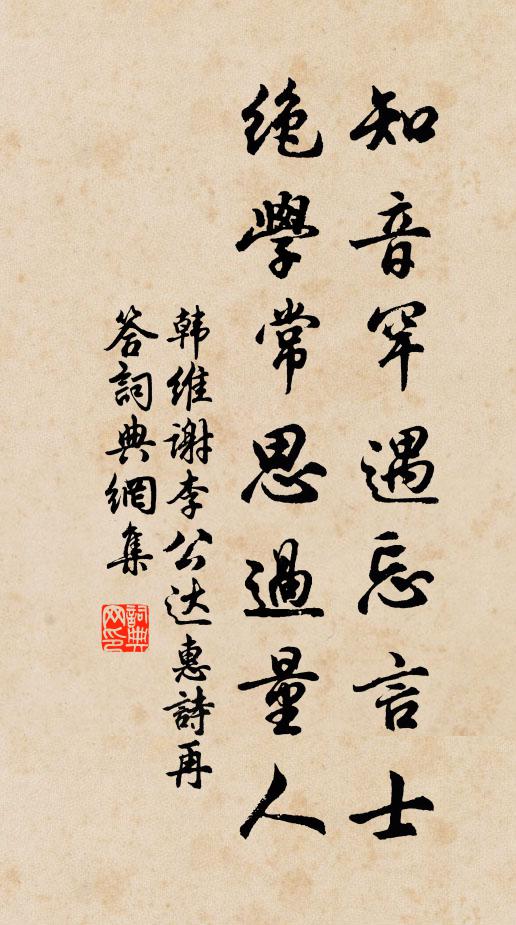 知音罕遇忘言士
絶學常思過量人
韩維谢李公达惠詩再
答詞典網集
詞典网印